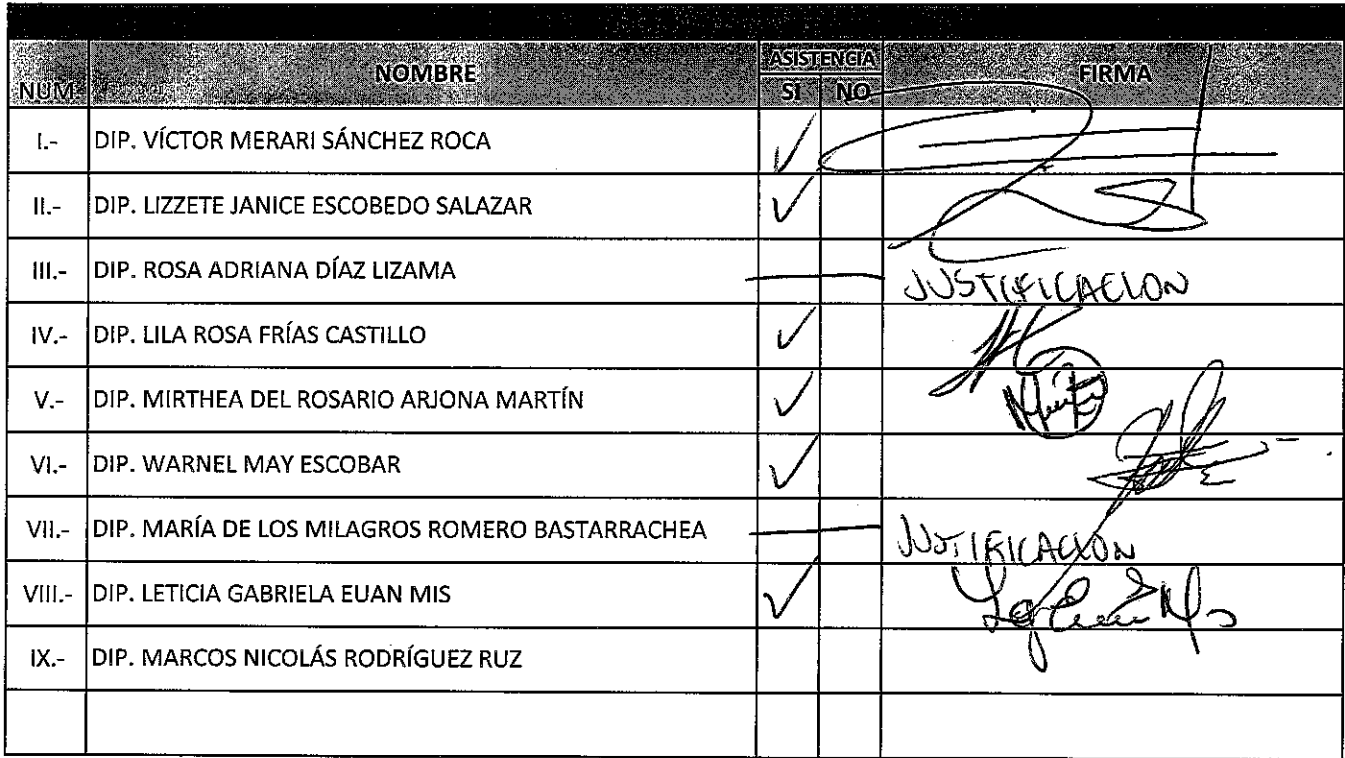 NUM. NOMBRE ASISTENCIA FIRMA
SI NO
I.- DIP. VÍCTOR MERARI SÁNCHEZ ROCA
II.- DIP. LIZZETE JANICE ESCOBEDO SALAZAR
III.- DIP. ROSA ADRIANA DÍAZ LIZAMA JUSTIFICACION
IV.- DIP. LILA ROSA FRÍAS CASTILLO
V.- DIP. MIRTHEA DEL ROSARIO ARJONA MARTÍN
VI.- DIP. WARNEL MAY ESCOBAR
VII.- DIP. MARÍA DE LOS MILAGROS ROMERO BASTARRACHEA JUSTIFICACION
VIII.- DIP. LETICIA GABRIELA EUAN MIS
IX.- DIP. MARCOS NICOLÁS RODRÍGUEZ RUZ